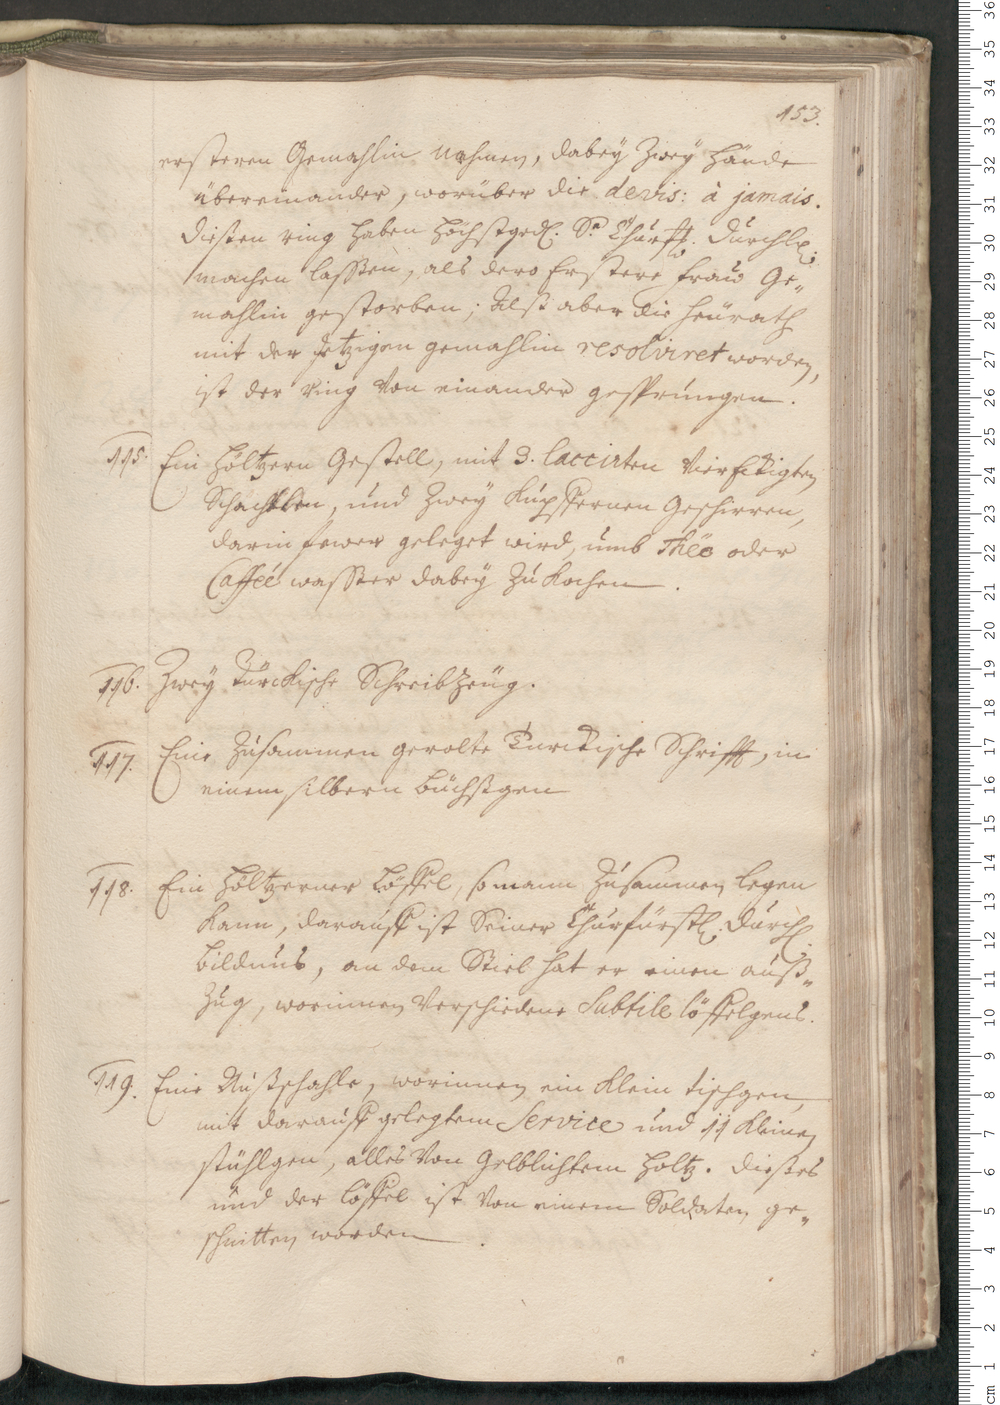 153.
ersteren Gemahlin Nahmen, dabeÿ Zweÿ Hände
übereinander, worüber die devis: à jamais.
Dießen ring haben höchstged. Sr. Churfl. Durchl.
machen laßen, als dero Erstere Frau Ge„
mahlin gestorben; Alß aber die Heurath
mit der jetzigen gemahlin resolviret worden,
ist der ring von einander gesprungen.
115. Ein Höltzern Gestell, mit 3. laccirten Viereckigten
Schachtlen, und Zweÿ Kupffernen Geschirren,
darin fewer geleget wird, umb Thée oder
Caffée wasser dabeÿ Zu Kochen.
116. Zweÿ Türckische Schreibzeüg.
117. Eine Zusammen gerolte Turckische Schrifft, in
einem silbern büchßgen
118. Ein höltzerner Löffel, so mann Zusammen legen
Kann, darauff ist Seiner Churfürstl: Durchl:
bildnus, an dem Stiel hat er einen auß„
Zug, worinnen Verschiedene Subtile löffelgens.
119. Eine Nußschahle, worinnen ein Klein tischgen,
mit darauff gelegtem Service und 11 Kleinen
stühlgen, alles Von Gelblichtem Holtz. dießes
und der löffel ist von einem Soldaten ge„
schnitten worden.
36
35
34
33
32
31
30
29
28
27
26
25
24
23
22
21
20
19
18
17
16
15
14
13
12
11
10
9
8
7
6
5
4
3
2
1
cm